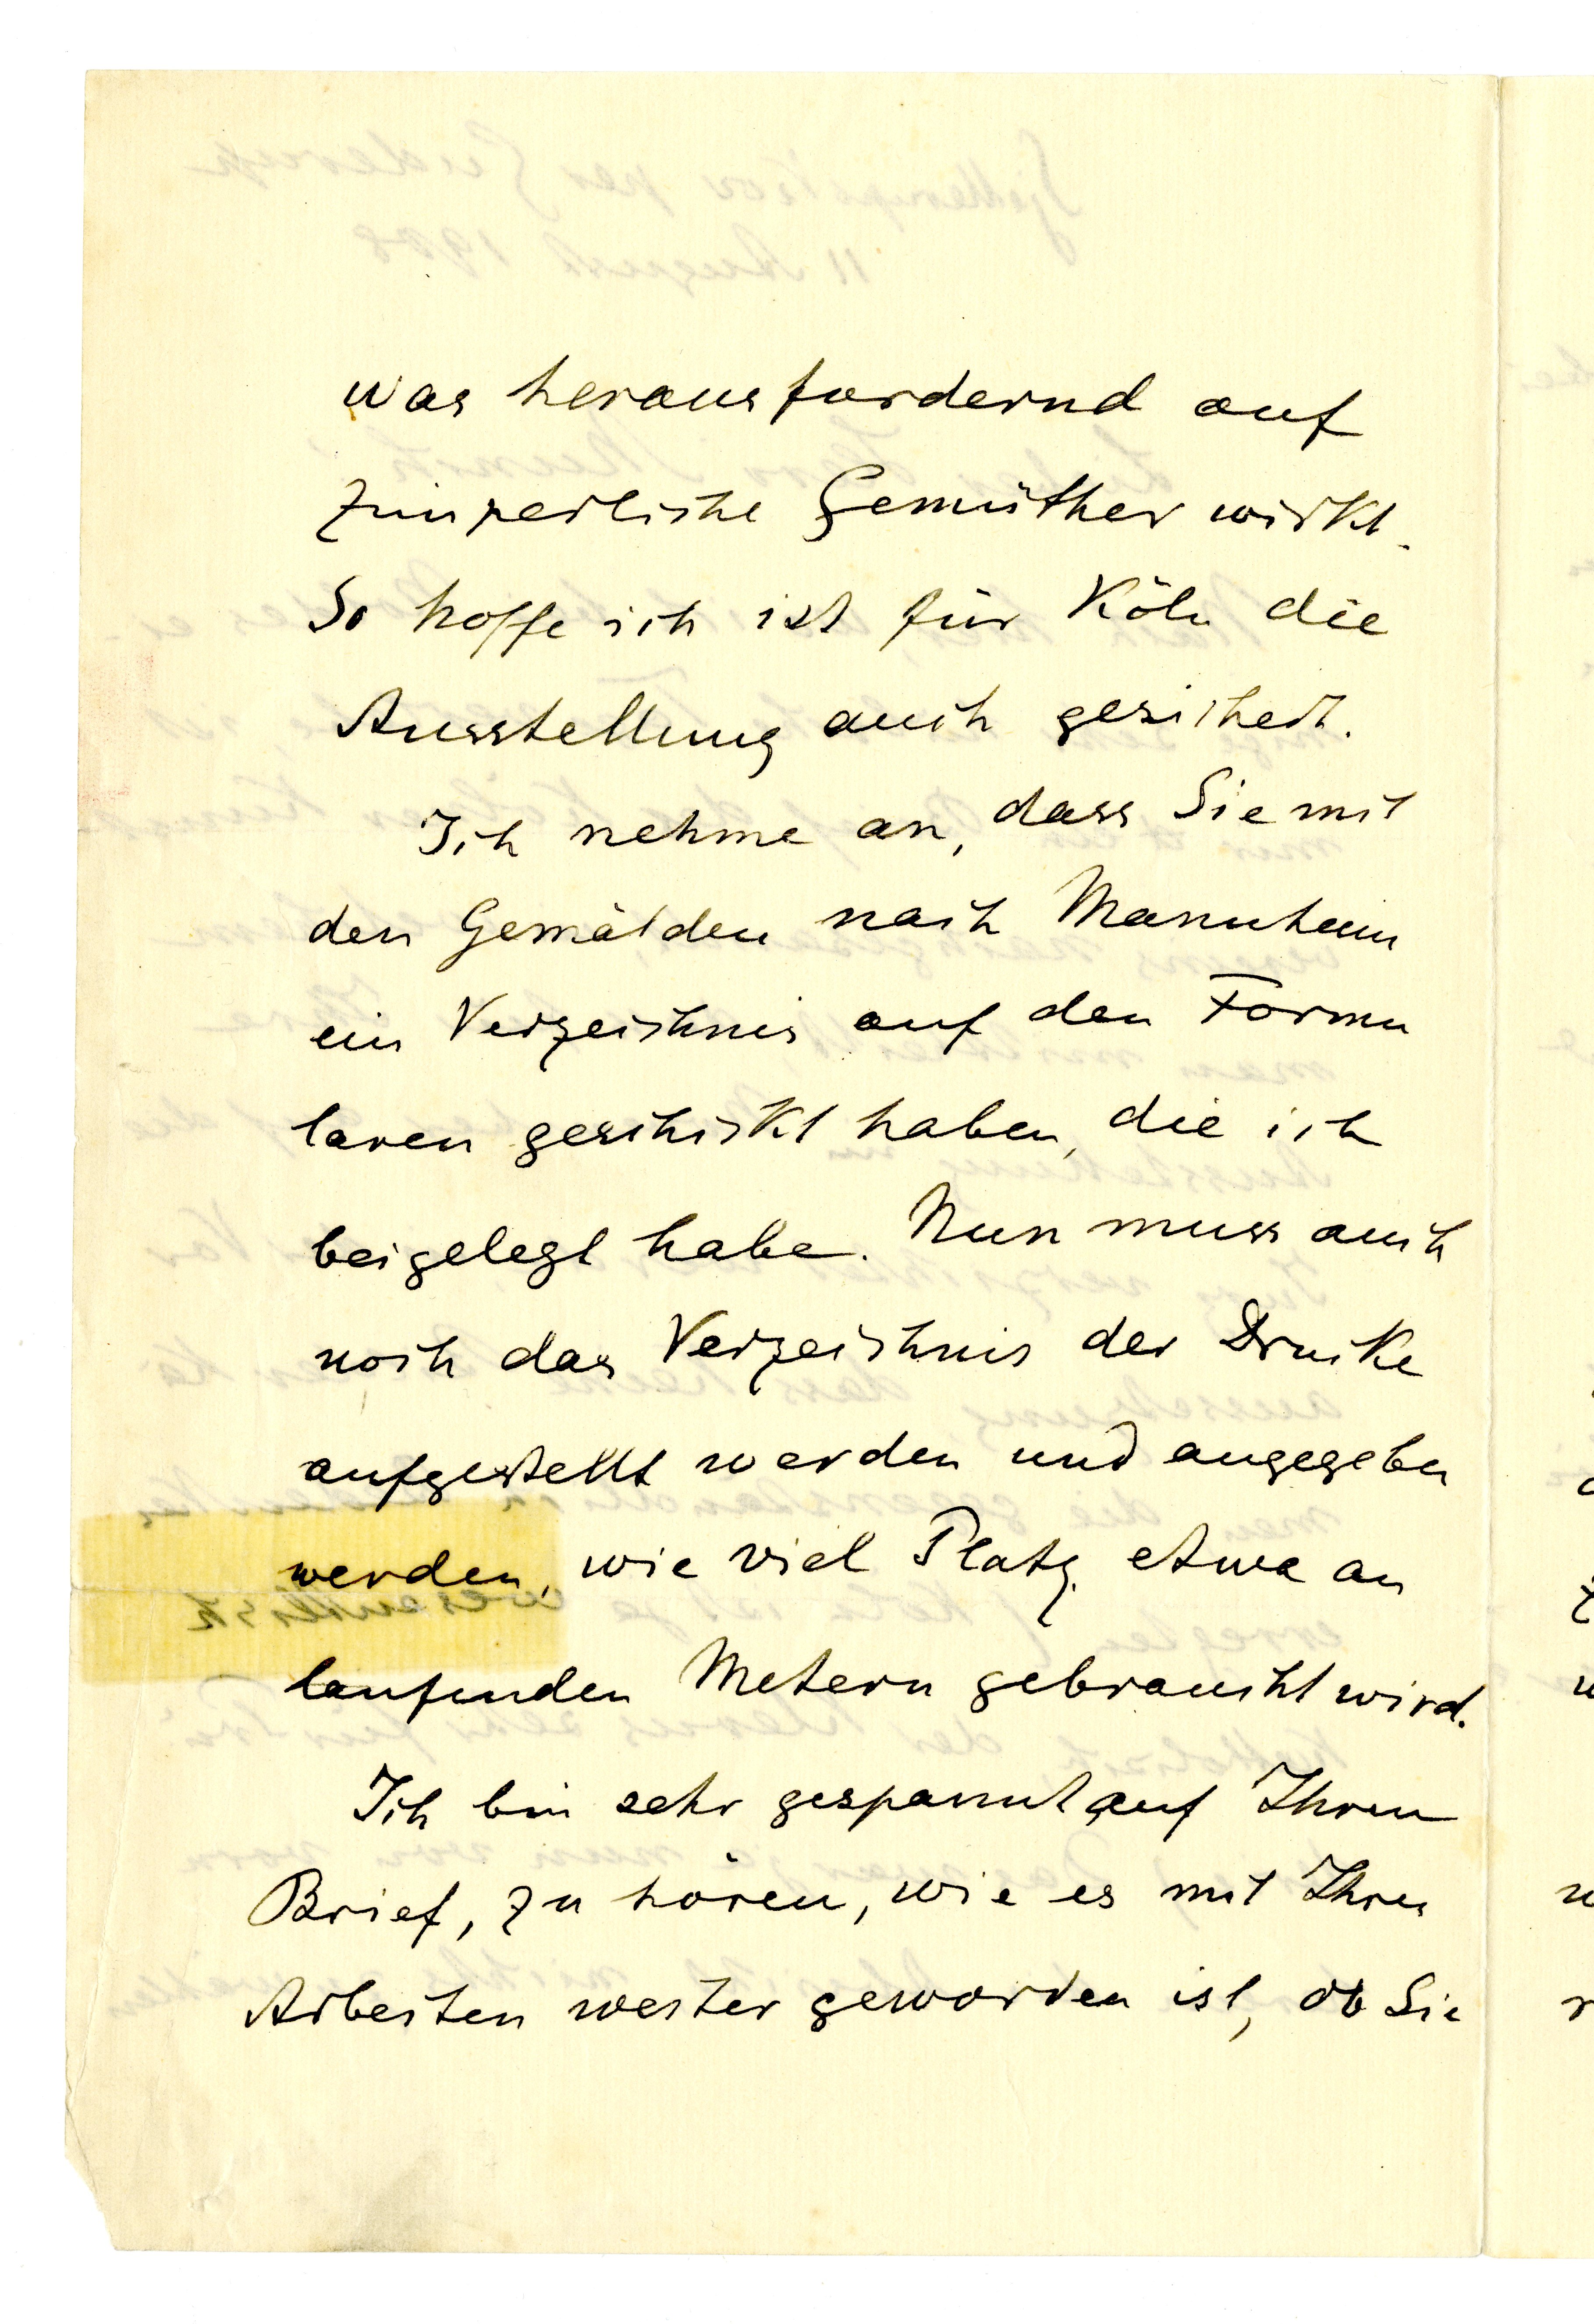 was herausfordernd auf
zimperliche Gemüther wirkt.
So hoffe ich ist für Köln die
Ausstellung auch gesichert.
Ich nehme an, dass Sie mit
den Gemälden nach Mannheim
ein Verzeichnis auf den Formu
laren geschickt haben, die ich
beigelegt habe. Nun muss auch
noch das Verzeichnis der Drucke
aufgestellt werden und angegeben
werden, wie viel Platz etwa an
laufenden Metern gebraucht wird.
Ich bin sehr gespannt auf Ihren
Brief, zu hören, wie es mit Ihren
Arbeiten weiter geworden ist, ob Sie